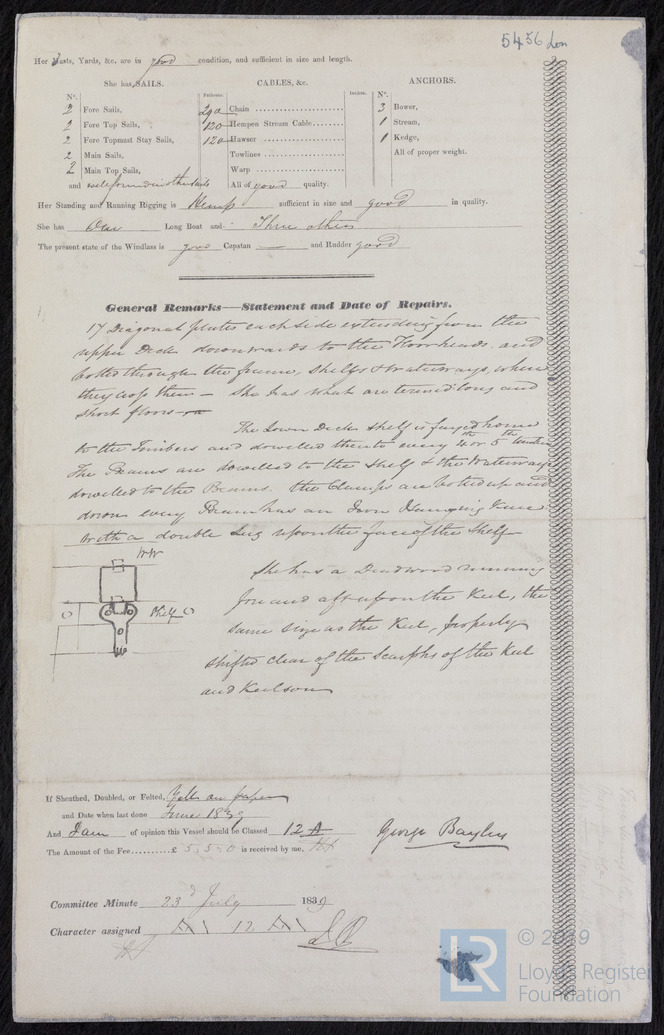 5456 Lon
Her Masts, Yards, &c. are in good condition, and sufficient in size and length.
She has SAILS. CABLES, &c. ANCHORS.
Nº. Fathoms. Inches. Nº.
2 Fore Sails, 290 Chain 3 Bower,
2 Fore Top Sails, 120 Hempen Stream Cable 1 Stream,
2 Fore Topmast Stay Sails, 120 Hawser 1 Kedge,
2 Main Sails, Towlines All of proper weight.
2 Main Top Sails, Warp
and well found in other sails All of good quality.
Her Standing and Running Rigging is Hemp sufficient in size and good in quality.
She has One Long Boat and Three others
The present state of the Windlass is good Capstan — and Rudder good
General Remarks—Statement and Date of Repairs.
17 Diagonal plates each side extending from the
upper Deck downwards to the Floorheads and
bolted through the frame, Shelfs & Waterways, where
they cross them — She has what are termed long and
short floors
The Lower Deck Shelf is fayed home
to the Timbers and dowelled thereto every 4th or 5th timber
The Beams are dowelled to the Shelf & the Waterways
dowelled to the Beams. the Clamps are bolted up and
down every Beam has an Iron Hanging Knee
with a double Lug upon the face of the Shelf
WW
Shelf
She has a Deadwood running
fore and aft upon the Keel, the
same size as the Keel, properly
shifted clear of the Scarphs of the Keel
and Keelson
If Sheathed, Doubled, or Felted, Yell on paper
and Date when last done June 1839
And I am of opinion this Vessel should be Classed 12 A George Bayley
The Amount of the Fee £ 5. 5. 0 is received by me,
Committee Minute 23d July 1839
Character assigned A1 12
© 2019
LR
Lloyd's Register
Foundation